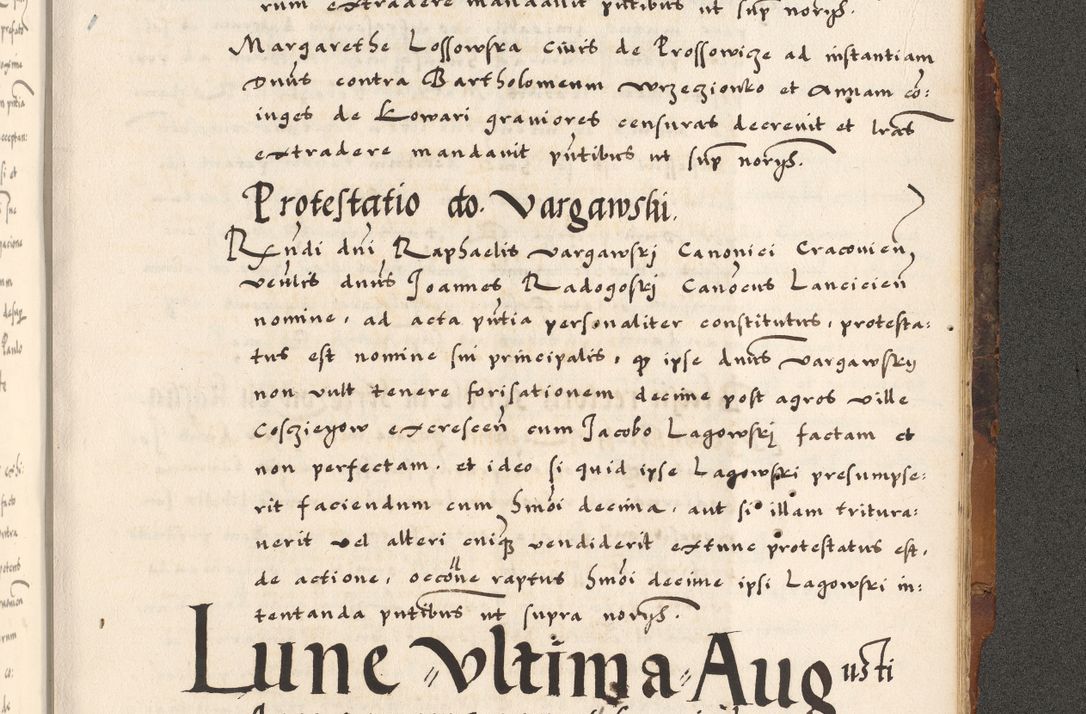 rum extradere mandavit pntibus ut sup norys.
Margarethe Lossowska civis de Prossowicze ad instantiam
Dnus contra Bartholomeum Wrzeczionko et Annam co:
iuges de Kowari graviores censuras decrevit et lras
extradere mandavit pntibus ut sup norys.
Protestatio do. Vargawski.
Rendi dni Raphaelis Vargawskj Canonici Cracovien
venlis dnus Joannes Radogoskj Canocus Lancicien
nomine, ad acta pntia personaliter constitutus, protesta:
tus est nomine sui principalis, qp ipse dnus Vargawsky
non vult tenere forisationem decime post agros ville
Cosczieyow excrescen cum Jacobo Lagowskj factam et
non perfectam. et ideo si quid ipse Lagowski presumpse:
rit faciendum cum hmoi decima, aut si illam tritura:
verit vel alteri cuiq vendiderit extunc protestatus est,
de actione, occone raptus hmoi decime ipsi Lagowski in:
tentanda pntibus ut supra norys.
Lune Ultima Augusti